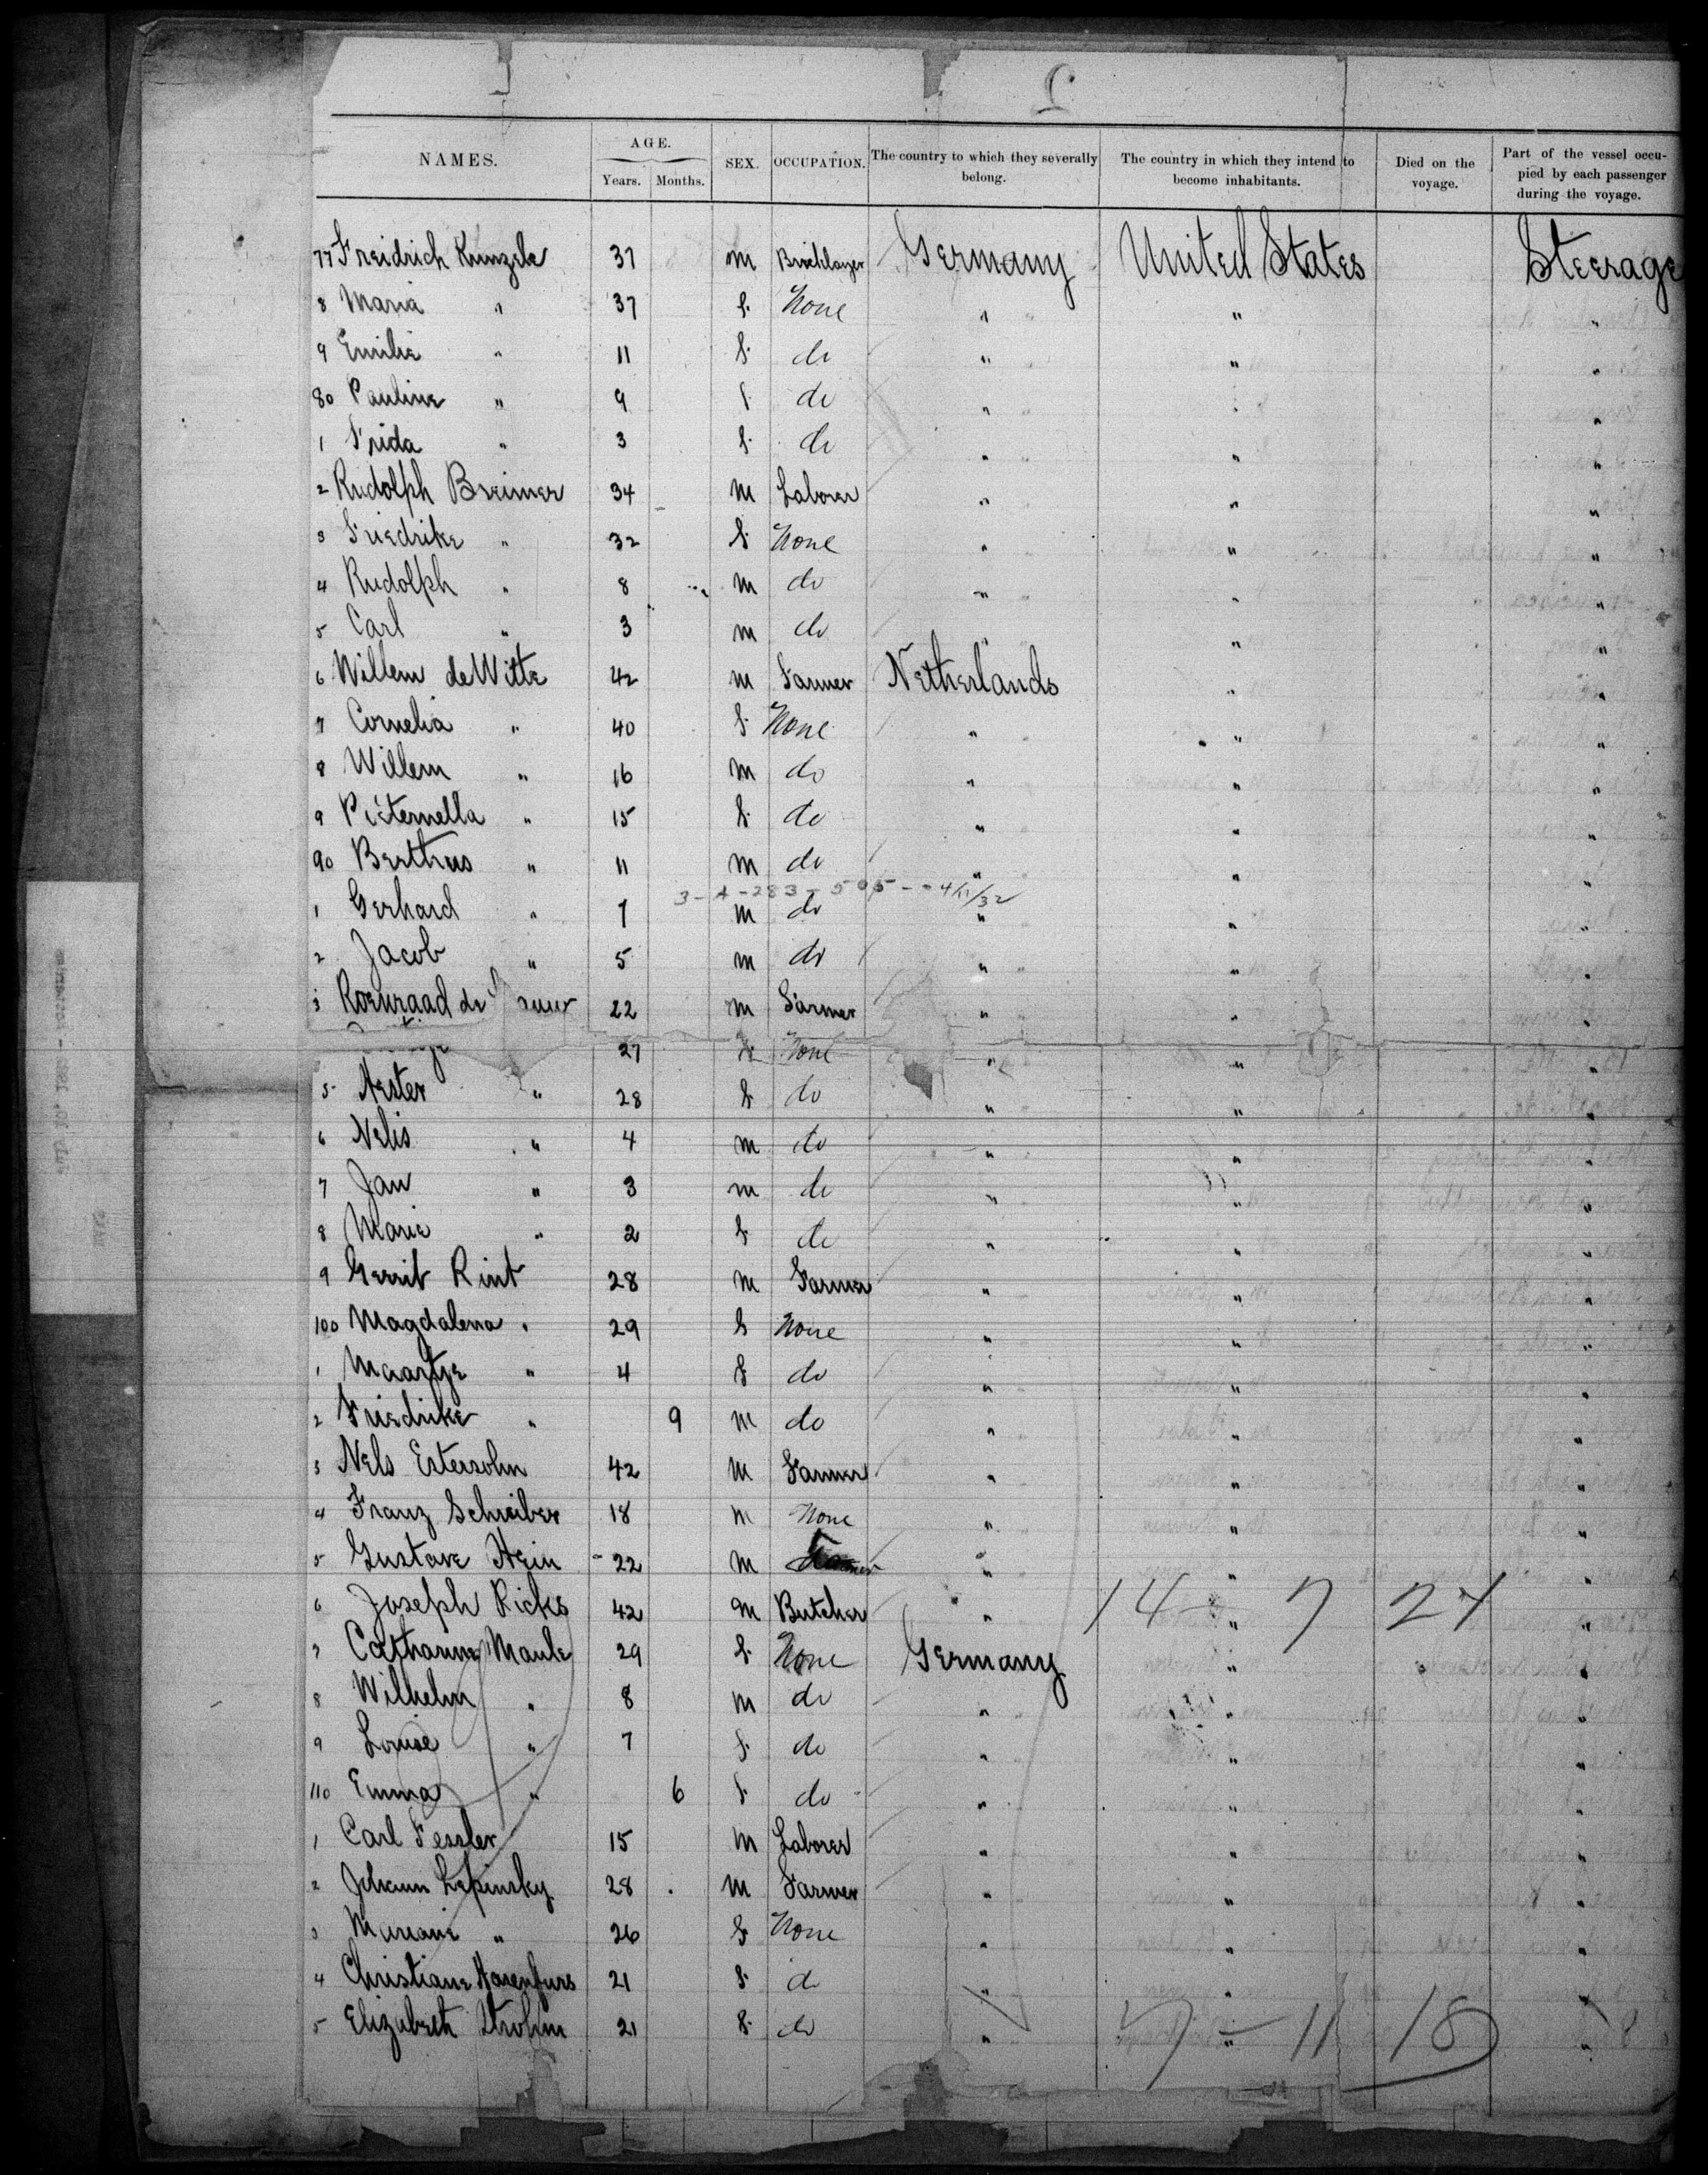 2
NAMES. AGE. Years. Months. SEX. OCCUPATION. The country to which they severally belong. The country in which they intend to become inhabitants. Died on the voyage. Part of the vessel occupied by each passenger during the voyage.
77 Freidrich Kunzele 37 m Bricklayer Germany United States Steerage
8 Maria " 37 f. None " " "
9 Emilie " 11 f. do " " "
80 Pauline " 9 f do " " "
1 Frida " 3 f. do " " "
2 Rudolph Breimer 34 m Laborer " " "
3 Friedrike " 32 f. None " " "
4 Rudolph " 8 m do " " "
5 Carl " 3 m do " " "
6 Willem de Witte 42 m Farmer Netherlands " "
7 Cornelia " 40 f. None " " "
8 Willem " 16 m do " " "
9 Pieternella " 15 f. do " " "
90 Berthus " 11 m do " " "
3-A-283-505-
1 Gerhard " 7 m do " " "
2 Jacob " 5 m do " " "
3 Koenraad de 22 m Farmer " " "
27 f. None " " "
5 Nester " 28 f do " " "
6 Nelis " 4 m do " " "
7 Jan " 3 m do " " "
8 Marie " 2 f do " " "
9 Gerrit Rint 28 m Farmer " " "
100 Magdalena " 29 f None " " "
1 Maartje " 4 f do " " "
2 Friedrike " 9 m do " " "
3 Nels Estersohn 42 m Farmer " " "
4 Franz Schreiber 18 m None " " "
5 Gustave Hein 22 m " " "
6 Joseph Ricks 42 m Butcher " " "
14 7 21
7 Catharine Maule 29 f. None Germany " "
8 Wilhelm " 8 m do " " "
9 Louise " 7 f. do " " "
110 Emma " 6 f. do " " "
1 Carl Fessler 15 m Laborer " " "
2 Johann Lapinsky 28 m Farmer " " "
3 " 26 f None " " "
4 Christiane 21 f. do " " "
5 Elizabeth Strohm 21 f. do " " "
7 - 11 18